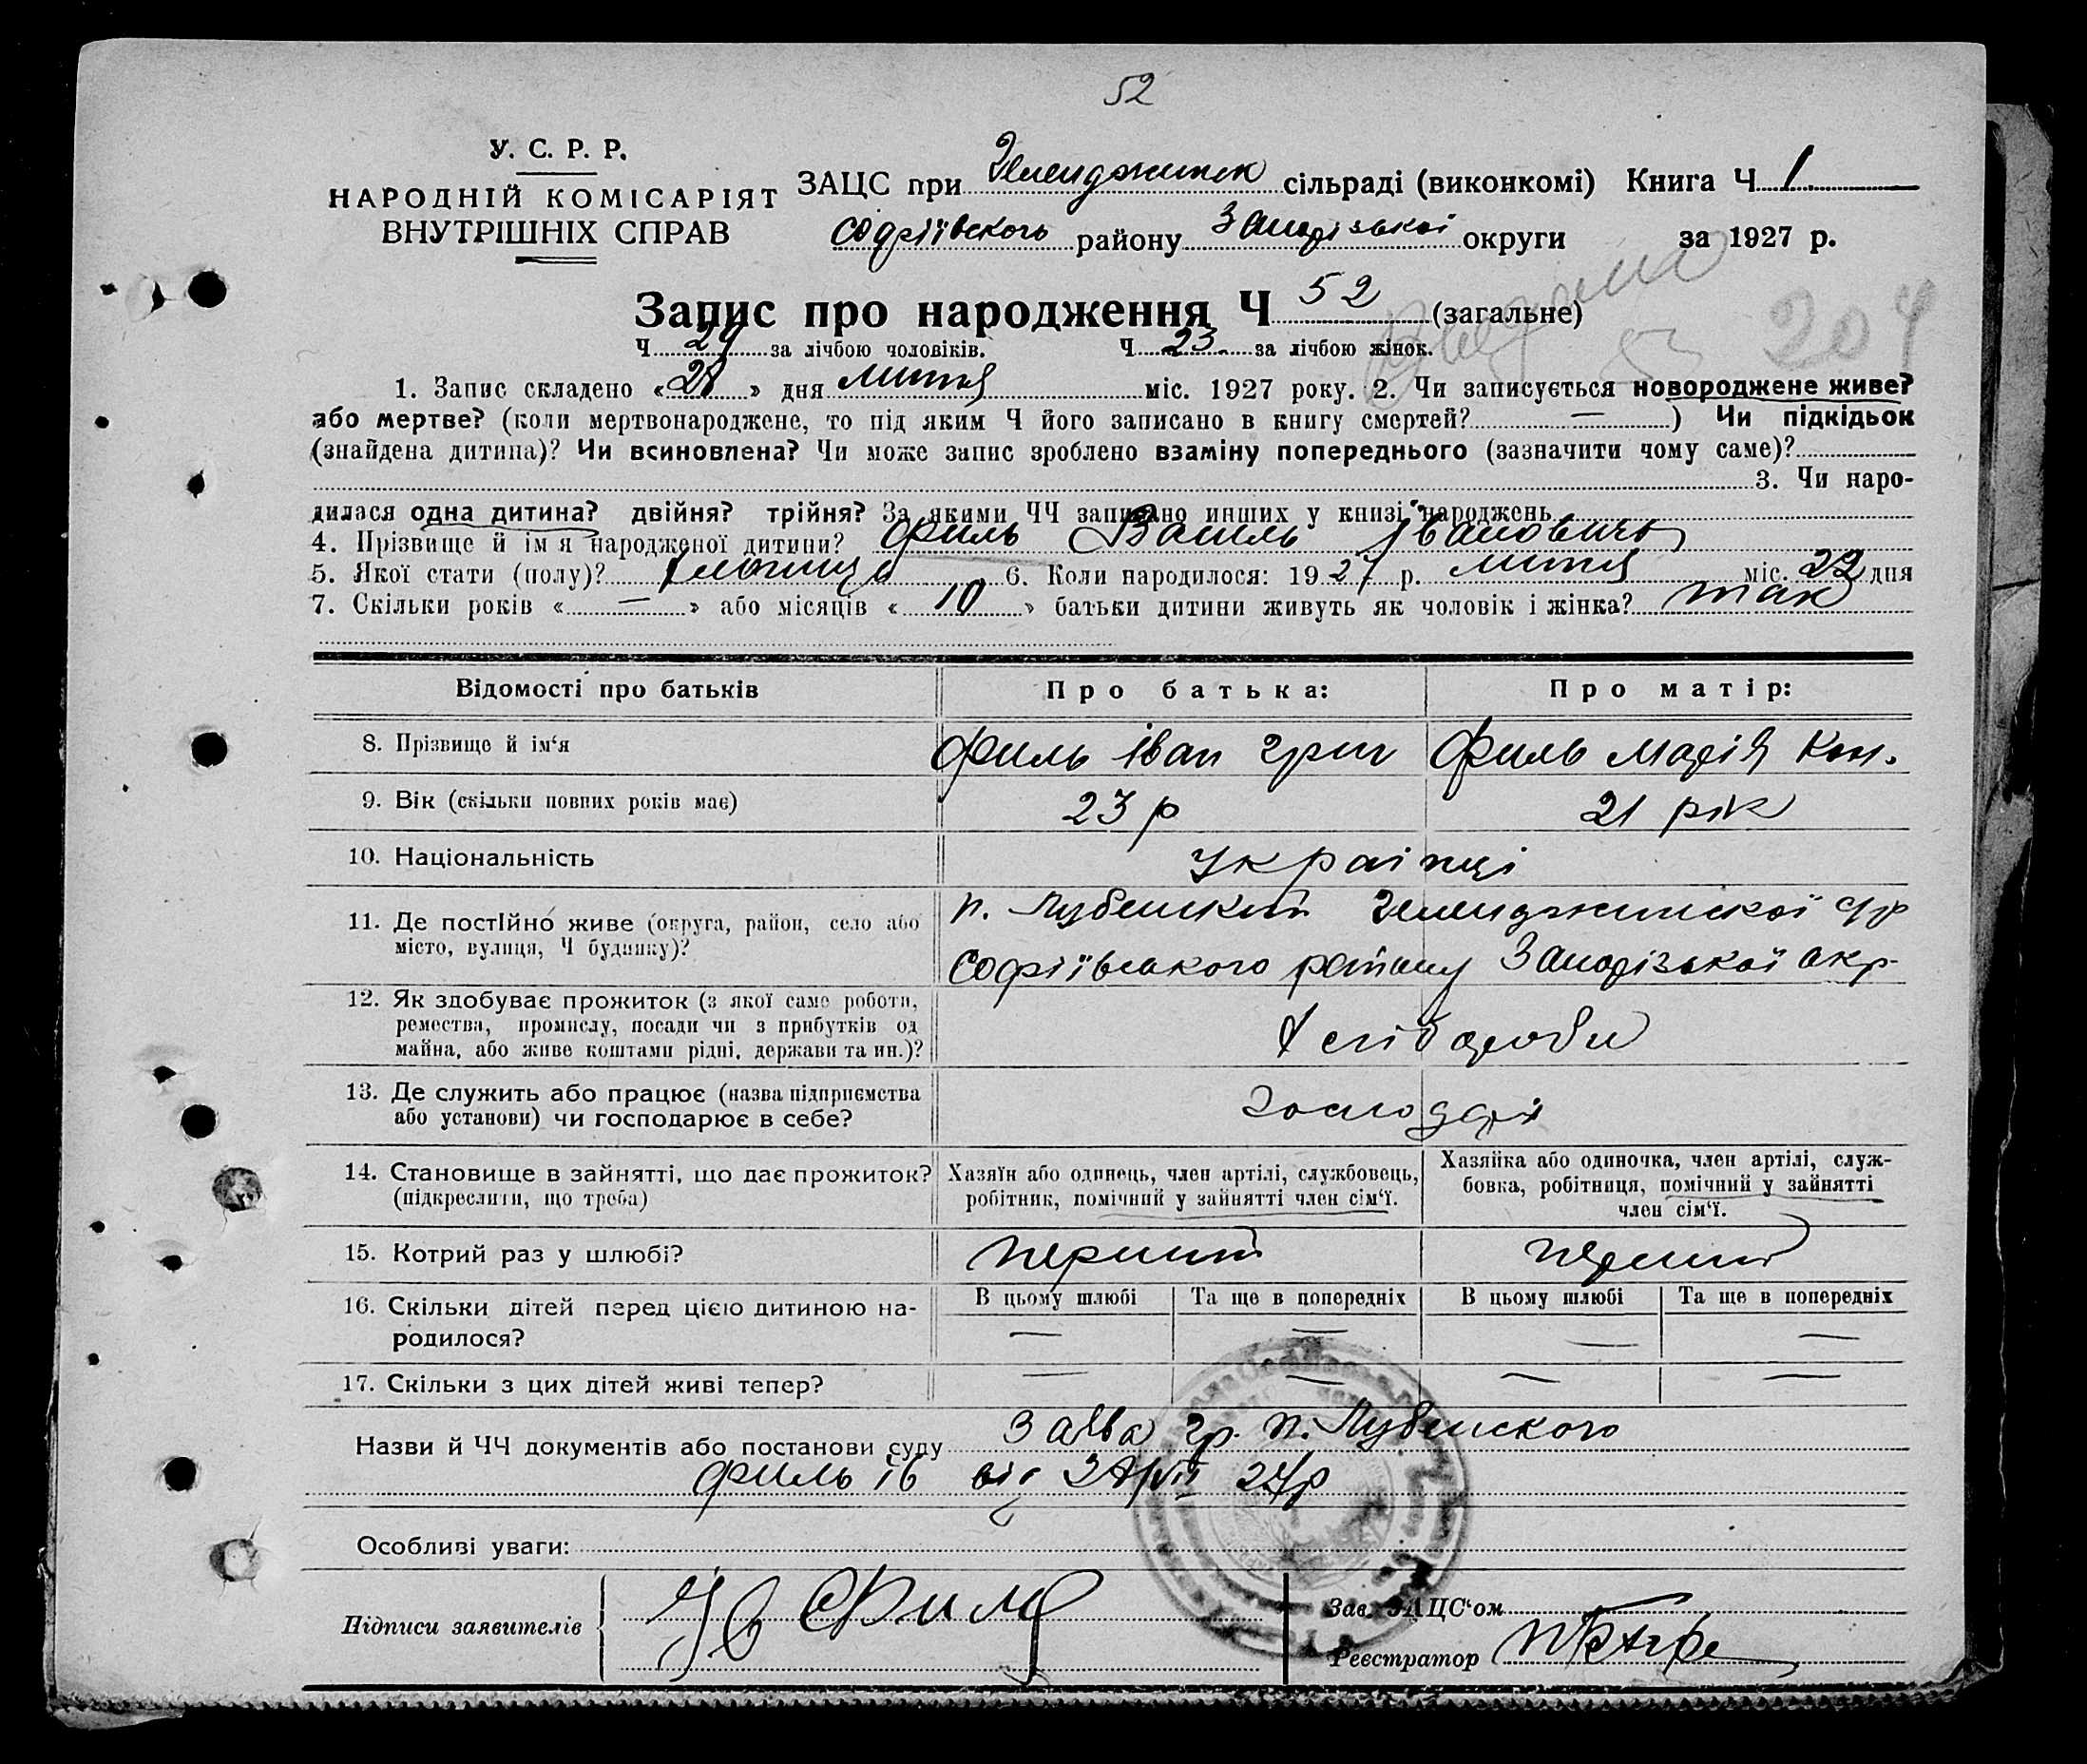 52
У. С. Р. Р.
НАРОДНІЙ КОМІСАРІЯТ
ВНУТРІШНІХ СПРАВ
ЗАЦС при сільраді (виконкомі) Книга Ч 1
Софіївского району Запорізької округи за 1927 р.
Запис про народження Ч 52 (загальне)
204
Ч 29 за лічбою чоловіків. Ч 23 за лічбою жінок.
1. Запис складено « 28 » дня лютня міс. 1927 року. 2. Чи записується новороджене живе?
або мертве? (коли мертвонароджене, то під яким Ч його записано в книгу смертей? — ) Чи підкідьок
(знайдена дитина)? Чи всиновлена? Чи може запис зроблено взаміну попереднього (зазначити чому саме)?
3. Чи наро-
дилася одна дитина? двійня? трійня? За якими ЧЧ записано инших у книзі народжень
4. Прізвище й імя народженої дитини? Филь Василь Івановичь
5. Якої стати (полу)? 6. Коли народилося: 1927 р. лютня міс. 22 дня
7. Скільки років « — » або місяців « 10 » батьки дитини живуть як чоловік і жінка? так
Відомості про батьків Про батька: Про матір:
8. Прізвище й ім‘я Филь Іван Григ Филь Марія Кон.
9. Вік (скільки повних років має) 23 р 21 рік
10. Національність Українці
11. Де постійно живе (округа, район, село або
місто, вулиця, Ч будинку)?
п. Лубенский
Софіївського району Запорізької окр.
12. Як здобуває прожиток (з якої само роботи,
ремества, промислу, посади чи з прибутків од
майна, або живе коштами рідні, держави та ин.)?
Хліборобы
13. Де служить або працює (назва підприємства
або установи) чи господарює в себе?
господарі
14. Становище в зайнятті, що дає прожиток?
(підкреслити, що треба)
Хазяїн або одинець, член артілі, службовець,
робітник, помічний у зайнятті член сім‘ї.
Хазяйка або одиночка, член артілі, служ-
бовка, робітниця, помічний у зайнятті
член сім‘ї.
15. Котрий раз у шлюбі? перший перший
16. Скільки дітей перед цією дитиною на-
родилося?
В цьому шлюбі Та ще в попередніх В цьому шлюбі Та ще в попередніх
— — — —
17. Скільки з цих дітей живі тепер? — — — —
Назви й ЧЧ документів або постанови суду Заява гр. п. Лубенского
Филь Ів від 27р
Особливі уваги:
Підписи заявителів Ів Филь
Зав. ЗАЦС‘ом
Реєстратор